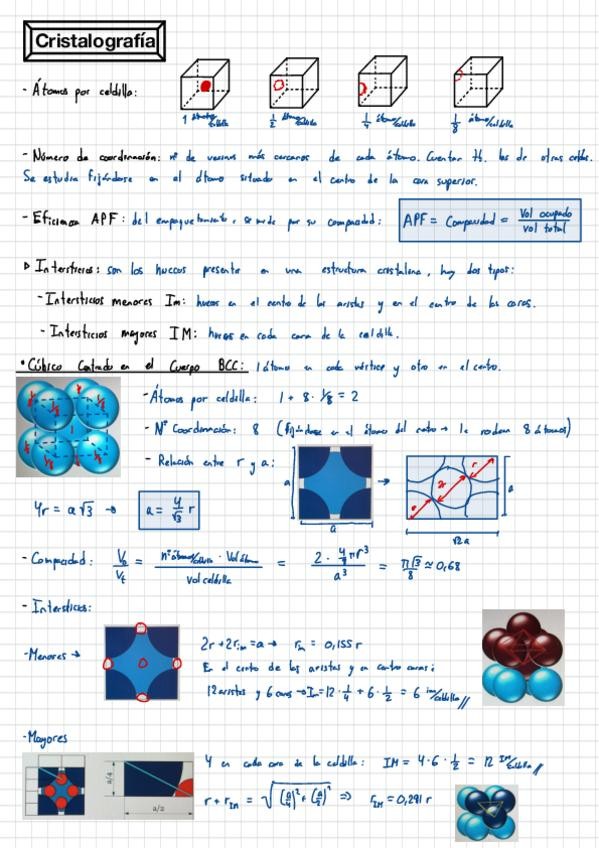 Cristalografía
- Átomos por celdilla:
1 átomo/celdilla 1/2 átomo/celdilla 1/4 átomo/celdilla 1/8 átomo/celdilla
- Número de coordinación: nº de vecinos más cercanos de cada átomo. Contar tb. los de otras celdas.
Se estudia fijándose en el átomo situado en el centro de la cara superior.
- Eficiencia APF: del empaquetamiento, se mide por su compacidad: APF = Compacidad = Vol ocupado / vol total
▷ Intersticios: son los huecos presente en una estructura cristalina, hay dos tipos:
- Intersticios menores Im: huecos en el centro de las aristas y en el centro de las caras.
- Intersticios mayores IM: huecos en cada cara de la celdilla.
• Cúbico Centrado en el Cuerpo BCC: 1 átomo en cada vértice y otro en el centro.
1/8 1/8 1/8 1/8 1
- Átomos por celdilla: 1 + 8 · 1/8 = 2
- Nº Coordinación: 8 (fijándose en el átomo del centro → le rodean 8 átomos)
- Relación entre r y a: a a → r 2r r a √2a
4r = a√3 → a = 4/√3 r
- Compacidad: Vo/Vt = nº átomos/celdilla · Vol átomo / Vol celdilla = 2 · 4/3 πr³ / a³ = π√3/8 ≈ 0,68
- Intersticios:
- Menores →
2r + 2rim = a → rim = 0,155 r
En el centro de las aristas y en centro caras:
12 aristas y 6 caras → Im = 12 · 1/4 + 6 · 1/2 = 6 im/celdilla //
- Mayores
a/4 a/2
4 en cada cara de la celdilla: IM = 4 · 6 · 1/2 = 12 IM/celdilla //
r + rIM = √((a/4)² + (a/2)²) ⇒ rIM = 0,291 r